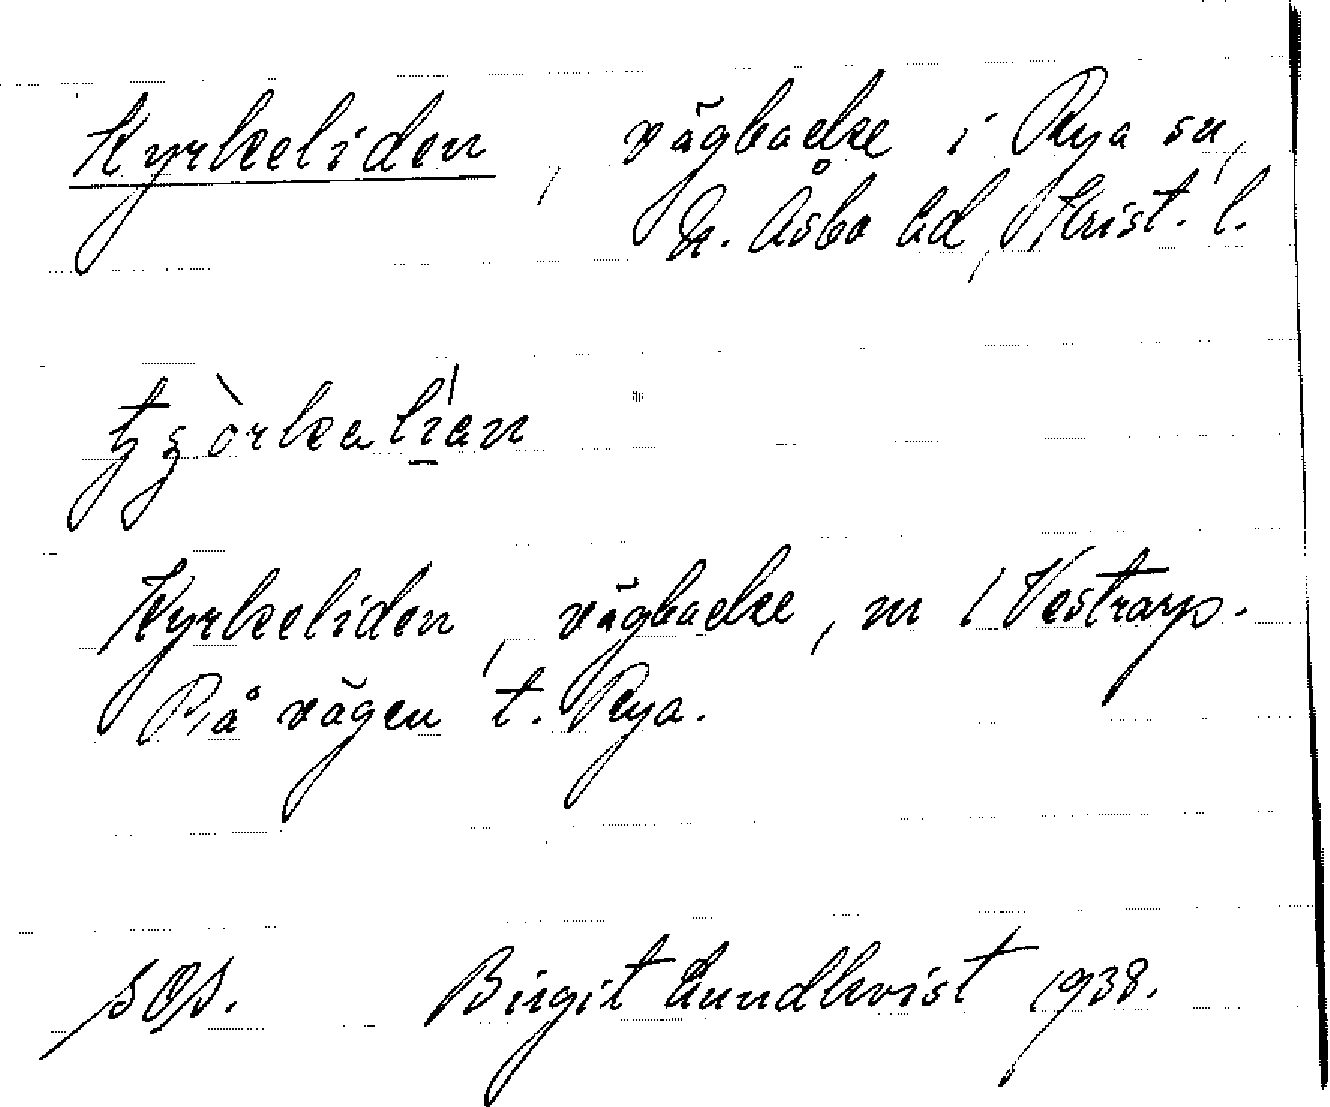 Kyrkeliden, vägbacke i Rya sn,
N. Åsbo hd, Krist. l.
Kyrkeliden, vägbacke, nr 1 Vestrarp.
På vägen t. Rya.
SOS. Birgit Lundkvist 1938.